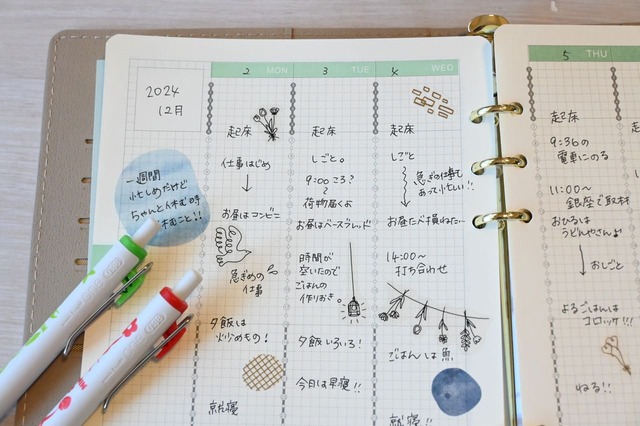 2024
12月
一週間
忙しめだけど
ちゃんと休む時
休むこと!!
2 MON
起床
仕事はじめ
お昼はコンビニ
急ぎめの
仕事
夕飯は
炒めもの!
就寝
3 TUE
起床
しごと。
9:00ころ?
荷物届くよ
お昼はベースブレッド
時間が
空いたので
ごはんの
作りおき。
夕飯いろいろ!
今日は早寝!!
4 WED
起床
しごと
急ぎの仕事も
あって忙しい!!
お昼たべ損ねた…
14:00〜
打ち合わせ
ごはんは魚
就寝!!
5 THU
起床
9:36の
電車にのる
11:00〜
銀座で取材
おひるは
うどんやさんよ
おしごと
よるごはんは
コロッケ!!!
ねる!!